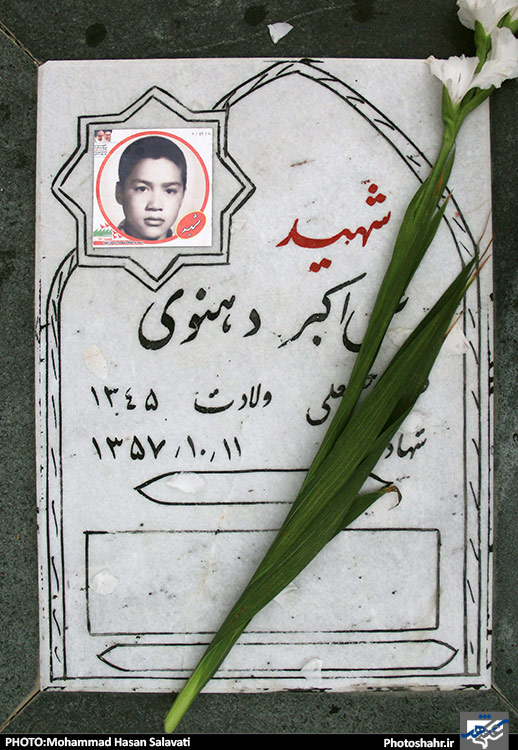 شهید
شهید
اکبر دهنوی
علی ولادت ۱۳۴۵
۱۳۵۷/۱۰/۱۱
PHOTO:Mohammad Hasan Salavati
Photoshahr.ir